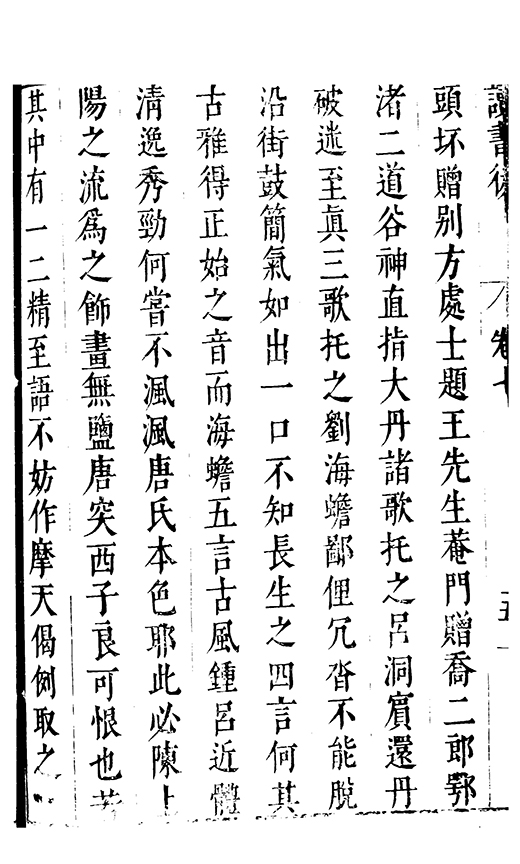 讀書後 卷七 五
頭坏贈别方處士題王先生菴門贈喬二郎鄂
渚二道谷神直指大丹諸歌托之呂洞賔還丹
破迷至眞三歌托之劉海蟾鄙俚冗沓不能脫
沿街鼓簡氣如出一口不知長生之四言何其
古雅得正始之音而海蟾五言古風鍾呂近體
清逸秀勁何嘗不渢渢唐氏本色耶此必陳上
陽之流爲之飾畫無鹽唐突西子良可恨也若
其中有一二精至語不妨作摩天偈例取之